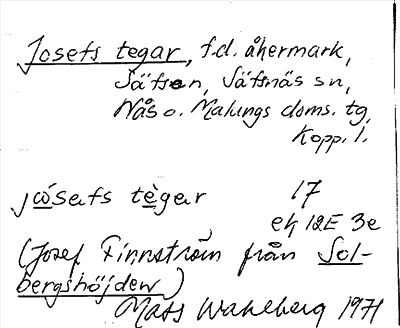 Josefs tegar, f.d. åkermark,
Säfsen, Säfsnäs sn,
Nås o. Malungs doms. tg,
Kopp. l.
jώsafs tègar 17
ek 12E 3e
(Josef Finnström från Sol-
bergshöjden)
Mats Wahlberg 1971